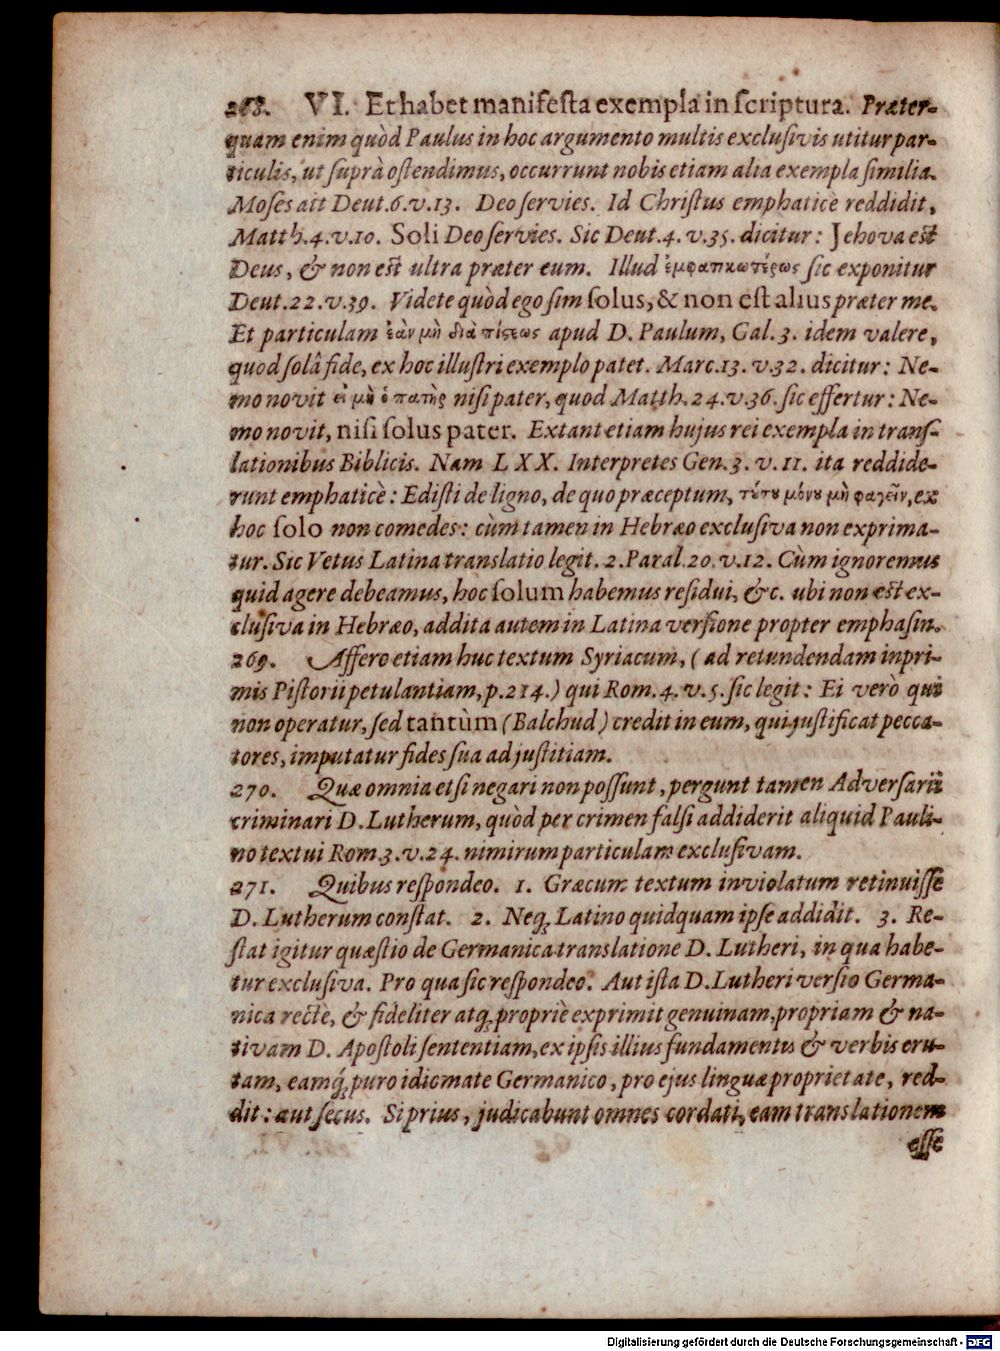 268. VI. Et habet manifesta exempla in scriptura. Præter-
quam enim quòd Paulus in hoc argumento multis exclusivis utitur par-
ticulis, ut suprà ostendimus, occurrunt nobis etiam alia exempla similia.
Moses ait Deut. 6. v. 13. Deo servies. Id Christus emphaticè reddidit,
Matth. 4. v. 10. Soli Deo servies. Sic Deut. 4. v. 35. dicitur: Jehova est
Deus, & non est ultra præter eum. Illud ἐμφατικωτέρως sic exponitur
Deut. 22. v. 39. Videte quòd ego sim solus, & non est alius præter me.
Et particulam ἐὰν μὴ διὰ πίστεως apud D. Paulum, Gal. 3. idem valere,
quod solâ fide, ex hoc illustri exemplo patet. Marc. 13. v. 32. dicitur: Ne-
mo novit εἰ μὴ ὁ πατὴρ nisi pater, quod Matth. 24. v. 36. sic effertur: Ne-
mo novit, nisi solus pater. Extant etiam hujus rei exempla in trans-
lationibus Biblicis. Nam LXX. Interpretes Gen. 3. v. 11. ita reddide-
runt emphaticè: Edisti de ligno, de quo præceptum, τούτου μόνου μὴ φαγεῖν, ex
hoc solo non comedes: cùm tamen in Hebræo exclusiva non exprima-
tur. Sic Vetus Latina translatio legit. 2. Paral. 20. v. 12. Cùm ignoremus
quid agere debeamus, hoc solum habemus residui, &c. ubi non est ex-
clusiva in Hebræo, addita autem in Latina versione propter emphasin.
269. Affero etiam huc textum Syriacum, (ad retundendam inpri-
mis Pistorii petulantiam, p. 214.) qui Rom. 4. v. 5. sic legit: Ei verò qui
non operatur, sed tantùm (Balchud) credit in eum, qui justificat pecca-
tores, imputatur fides sua ad justitiam.
270. Quæ omnia etsi negari non possunt, pergunt tamen Adversarii
criminari D. Lutherum, quòd per crimen falsi addiderit aliquid Pauli-
no textui Rom. 3. v. 24. nimirum particulam exclusivam.
271. Quibus respondeo. 1. Græcum textum inviolatum retinuisse
D. Lutherum constat. 2. Neq; Latino quidquam ipse addidit. 3. Re-
stat igitur quæstio de Germanica translatione D. Lutheri, in qua habe-
tur exclusiva. Pro qua sic respondeo. Aut ista D. Lutheri versio Germa-
nica rectè, & fideliter atq; propriè exprimit genuinam, propriam & na-
tivam D. Apostoli sententiam, ex ipsis illius fundamentis & verbis eru-
tam, eamq́; puro idiomate Germanico, pro ejus linguæ proprietate, red-
dit: aut secus. Si prius, judicabunt omnes cordati, eam translationem
esse
Digitalisierung gefördert durch die Deutsche Forschungsgemeinschaft - DFG